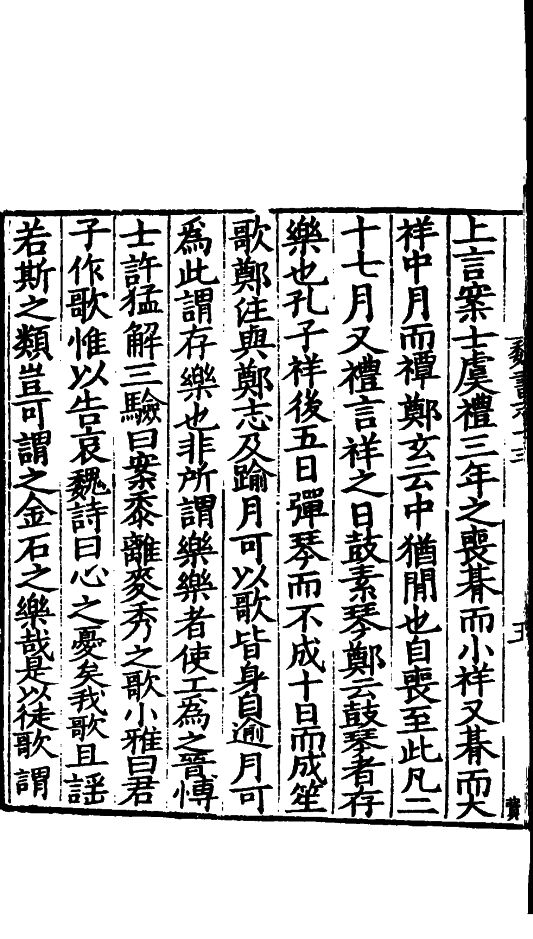 上言案士虞禮三年之喪朞而小祥又朞而大
祥中月而禫鄭玄云中猶閒也自喪至此凡二
十七月又禮言祥之日鼓素琴鄭云鼓琴者存
樂也孔子祥後五日彈琴而不成十日而成笙
歌鄭注與鄭志及踰月可以歌皆身自逾月可
爲此謂存樂也非所謂樂樂者使工爲之晉博
士許猛解三驗曰案黍離麥秀之歌小雅曰君
子作歌惟以告哀魏詩曰心之憂矣我歌且謡
若斯之類豈可謂之金石之樂哉是以徒歌謂